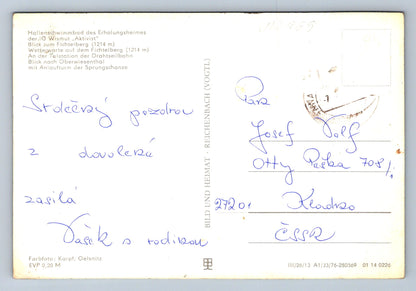 Hallenschwimmbad des Erholungsheimes
der IG Wismut „Aktivist"
Blick zum Fichtelberg (1214 m)
Wetterwarte auf dem Fichtelberg (1214 m)
An der Talstation der Drahtseilbahn
Blick nach Oberwiesenthal
mit Anlaufturm der Sprungschanze
Srdečný pozdrav
z dovolené
zasílá
Vašek s rodinou
Farbfoto: Karpf, Oelsnitz
EVP 0,20 M
BILD UND HEIMAT REICHENBACH (VOGTL)
Pan
Josef Volf
Otty Peška 708
27201 Kladno
ČSSR
A1/33/76-280569 01 14 0226